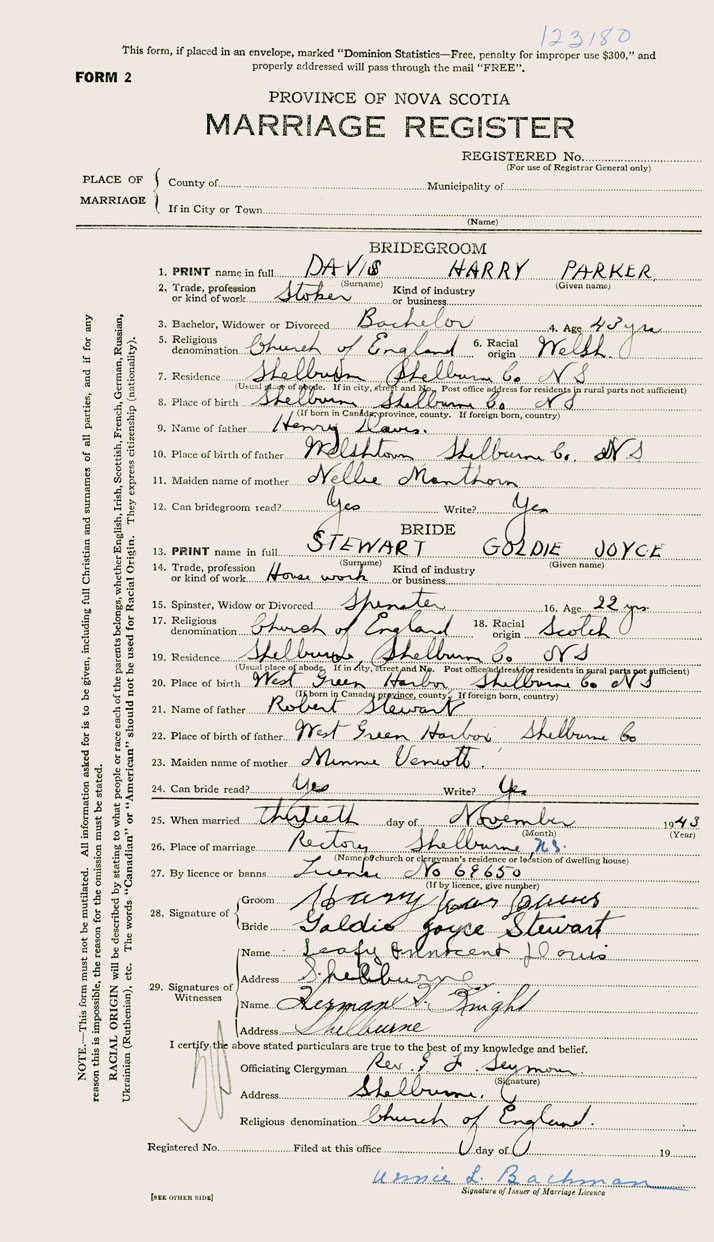 123180
This form, if placed in an envelope, marked "Dominion Statistics—Free, penalty for improper use $300," and
properly addressed will pass through the mail "FREE".
FORM 2
PROVINCE OF NOVA SCOTIA
MARRIAGE REGISTER
REGISTERED No.
(For use of Registrar General only)
PLACE OF MARRIAGE
County of Municipality of
If in City or Town
(Name)
BRIDEGROOM
1. PRINT name in full DAVIS HARRY PARKER
(Surname) (Given name)
2. Trade, profession or kind of work Stoker Kind of industry or business
3. Bachelor, Widower or Divorced Bachelor 4. Age 43 yrs
5. Religious denomination Church of England 6. Racial origin Welsh
7. Residence Shelburne Shelburne Co NS
(Usual place of abode. If in city, street and No. Post office address for residents in rural parts not sufficient)
8. Place of birth Shelburne Shelburne Co. NS
(If born in Canada, province, county. If foreign born, country)
9. Name of father Henry Davis.
10. Place of birth of father Welshtown Shelburne Co. NS
11. Maiden name of mother Nellie Manthorn
12. Can bridegroom read? Yes Write? Yes
BRIDE
13. PRINT name in full STEWART GOLDIE JOYCE
(Surname) (Given name)
14. Trade, profession or kind of work House work Kind of industry or business
15. Spinster, Widow or Divorced Spinster 16. Age 22 yrs.
17. Religious denomination Church of England 18. Racial origin Scotch
19. Residence Shelburne Shelburne Co NS
(Usual place of abode. If in city, street and No. Post office address for residents in rural parts not sufficient)
20. Place of birth West Green Harbor Shelburne Co NS
(If born in Canada, province, county. If foreign born, country)
21. Name of father Robert Stewart
22. Place of birth of father West Green Harbor Shelburne Co
23. Maiden name of mother Minnie
24. Can bride read? Yes Write? Yes
25. When married thirtieth day of November 1943
(Month) (Year)
26. Place of marriage Rectory Shelburne N.S.
(Name of church or clergyman's residence or location of dwelling house)
27. By licence or banns License No 69650
(If by licence, give number)
28. Signature of
Groom Harry Davis
Bride Goldie Joyce Stewart
29. Signatures of Witnesses
Name Innocent Davis
Address Shelburne
Name Herman Knight
Address Shelburne
I certify the above stated particulars are true to the best of my knowledge and belief.
Officiating Clergyman Rev. G F. Seymour.
(Signature)
Address Shelburne.
Religious denomination Church of England.
Registered No. Filed at this office day of 19
Annie L. Bachman
Signature of Issuer of Marriage Licence
[SEE OTHER SIDE]
NOTE.—This form must not be mutilated. All information asked for is to be given, including full Christian and surnames of all parties, and if for any
reason this is impossible, the reason for the omission must be stated.
RACIAL ORIGIN will be described by stating to what people or race each of the parents belongs, whether English, Irish, Scottish, French, German, Russian,
Ukrainian (Ruthenian), etc. The words "Canadian" or "American" should not be used for Racial Origin. They express citizenship (nationality).